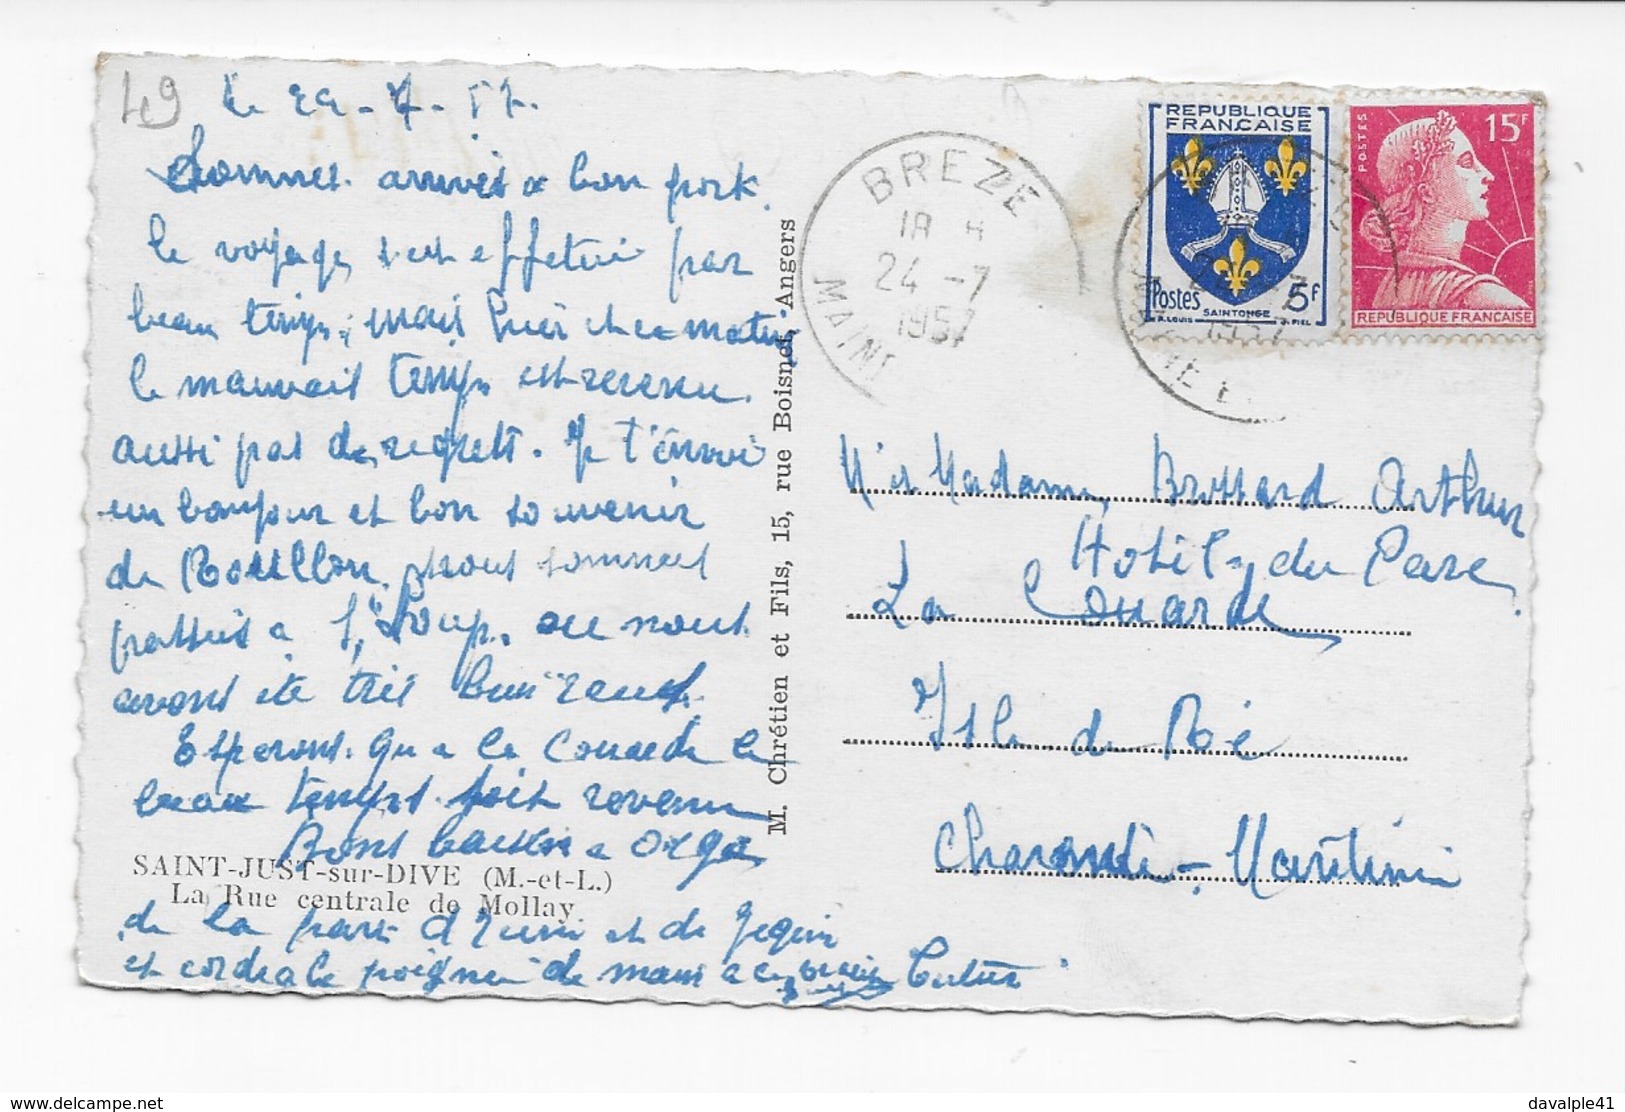 49
le 24-7-57.
Sommes arrivés a bon port.
le voyage s'est effetué par
beau temps, mais hier et ce matin
le mauvais temps est revenu.
aussi pas de regrets. Je t'envoi
un bonjour et bon souvenir
de Nous sommes
passés a ou nous
avons été très bien reçus.
Esperons qu a la Couarde le
beau temps soit revenu
Bons baisers a
SAINT-JUST-sur-DIVE (M.-et-L.)
La Rue centrale de Mollay
de la part d' et de
et cordiale poignée de main a
M. Chrétien et Fils, 15, rue Boisnet, Angers
BREZE
18 H
24 -7
1957
MAINE
REPUBLIQUE
FRANÇAISE
Postes
5F
SAINTONGE
A. LOUIS
J. PIEL
POSTES
15F
REPUBLIQUE FRANÇAISE
M et Madame Brossard Arthur
Hotel du Parc
La Couarde
Isle de Ré
Charente-Maritime
delcampe.net
davalple41